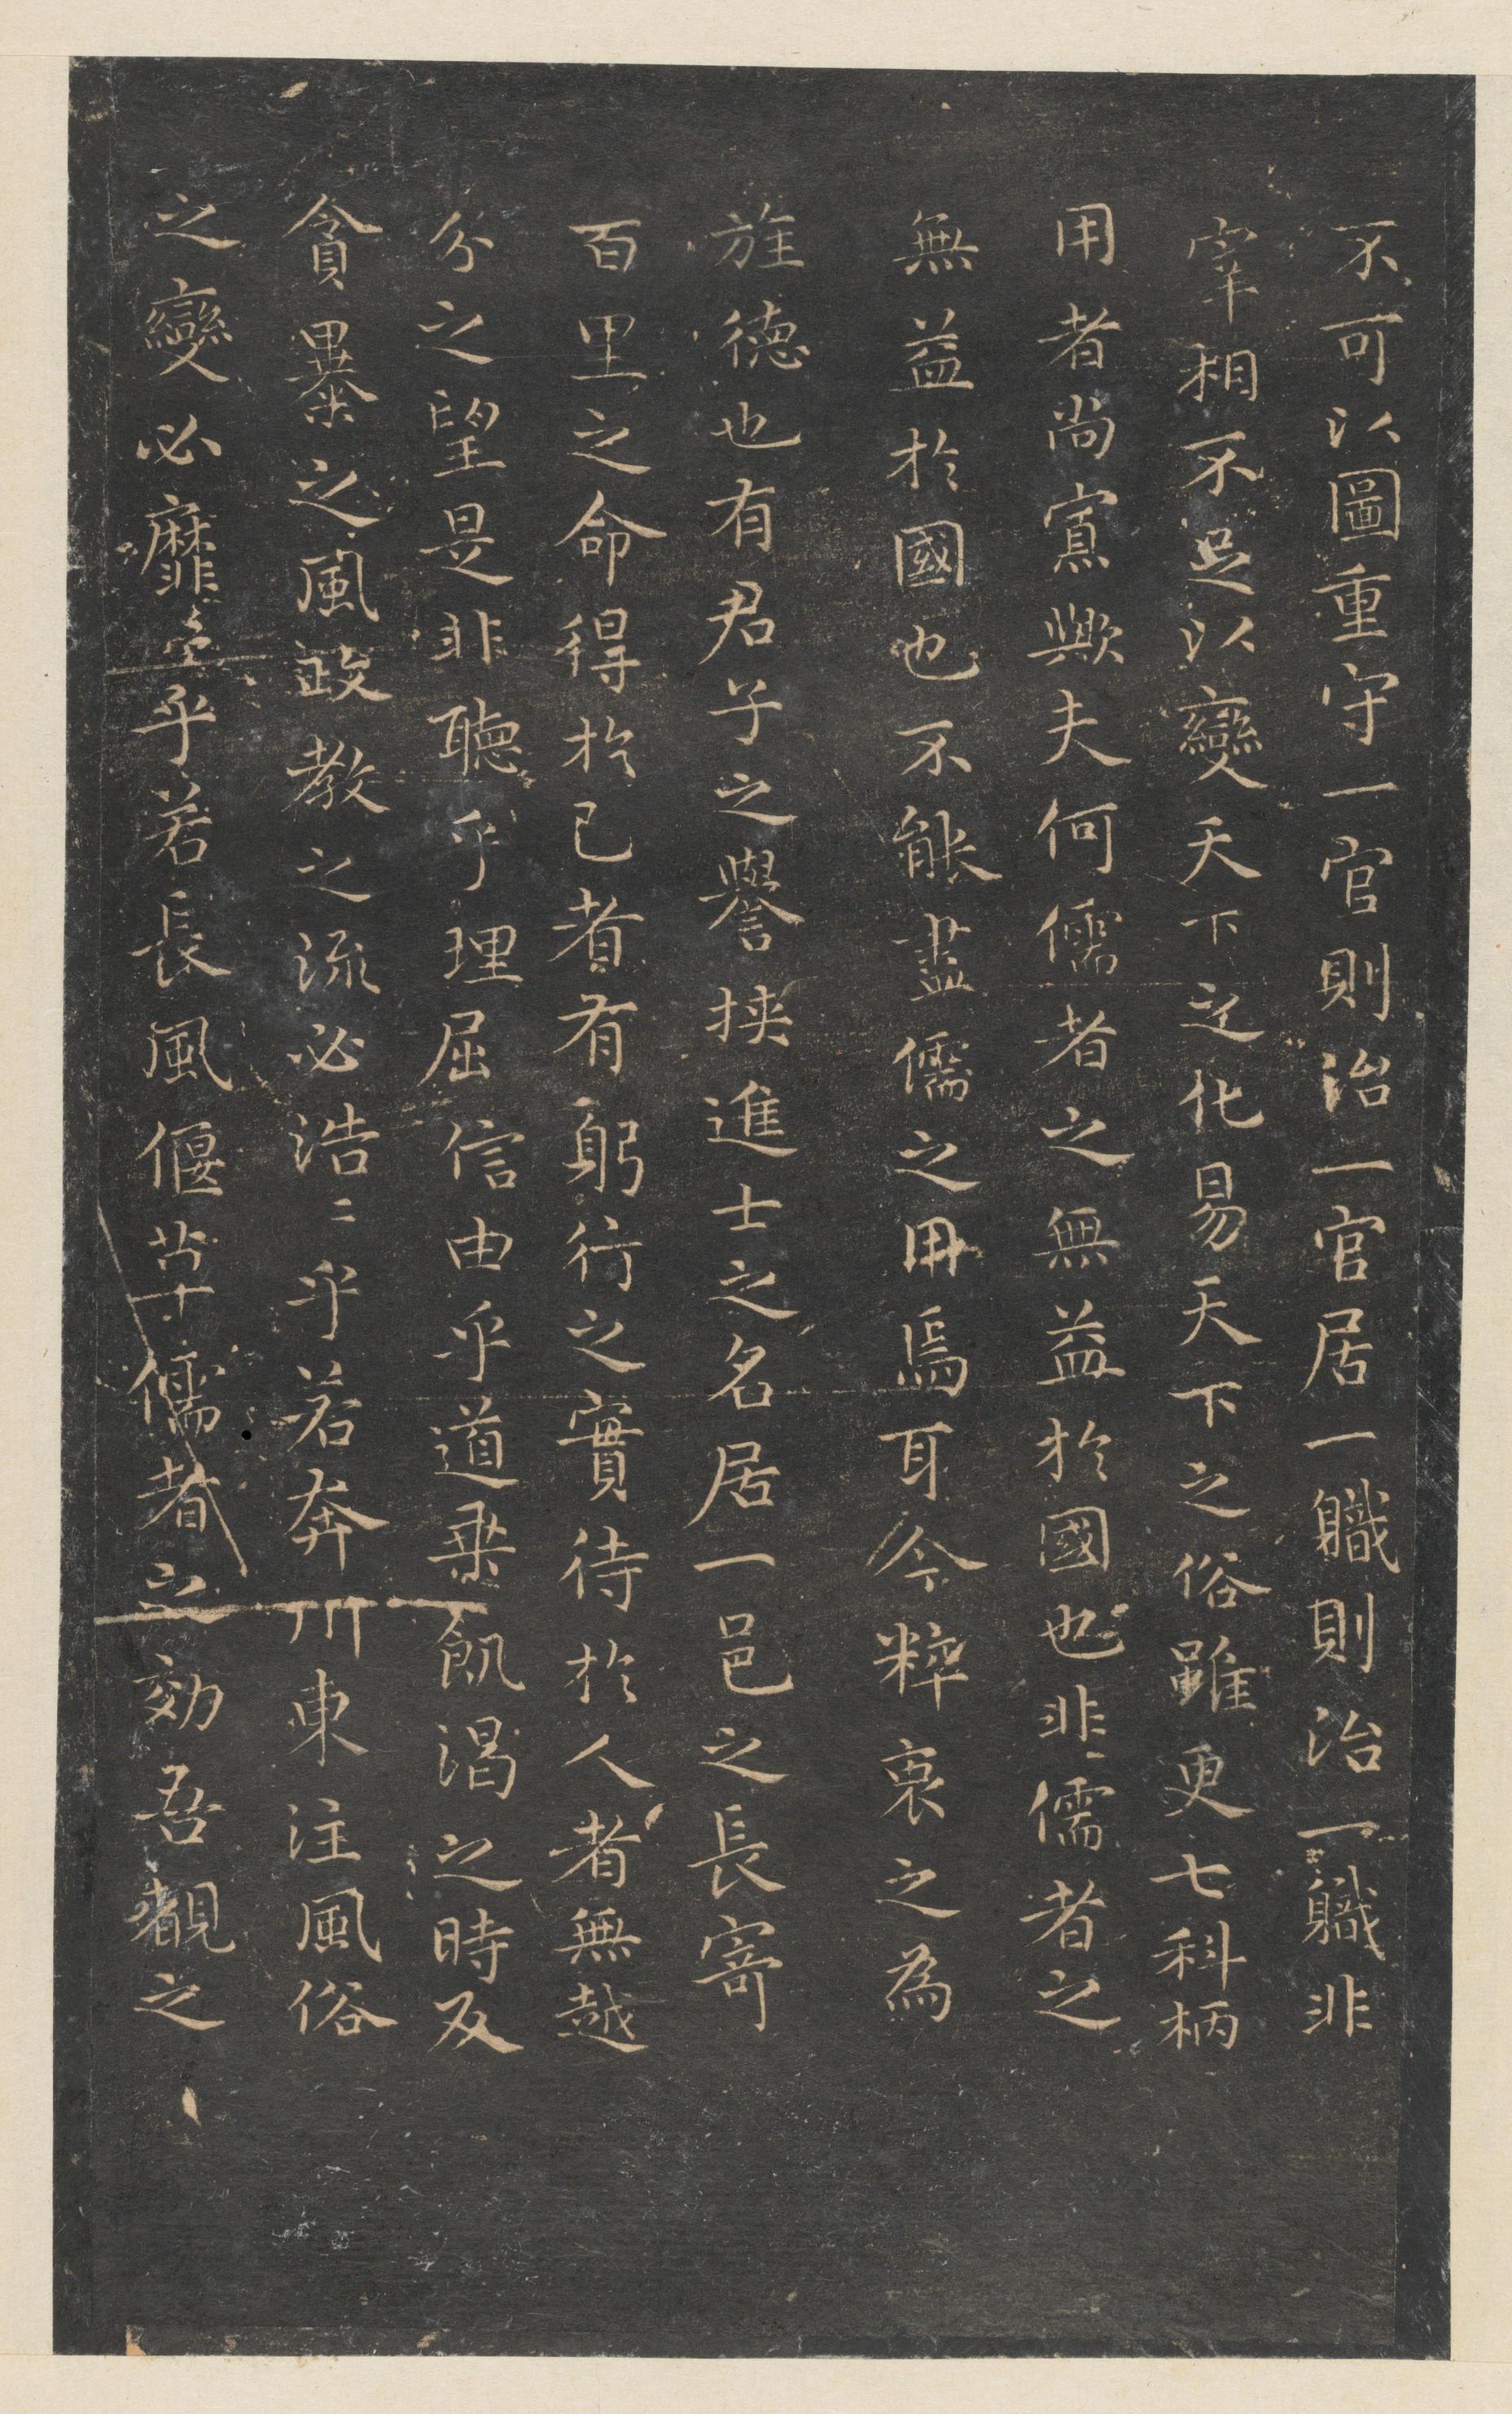 不可以圖重守一官則治一官居一職則治一職非
宰相不足以變天下之化易天下之俗雖更七科柄
用者尚寡歟夫何儒者之無益於國也非儒者之
無益於國也不能盡儒之用焉耳今粹衷之為
旌德也有君子之譽挾進士之名居一邑之長寄
百里之命得於己者有躬行之實待於人者無越
分之望是非聽乎理屈信由乎道乗飢渇之時反
貪暴之風政教之流必浩〻乎若奔川東注風俗
之變必靡〻乎若長風偃草儒者之効吾觀之